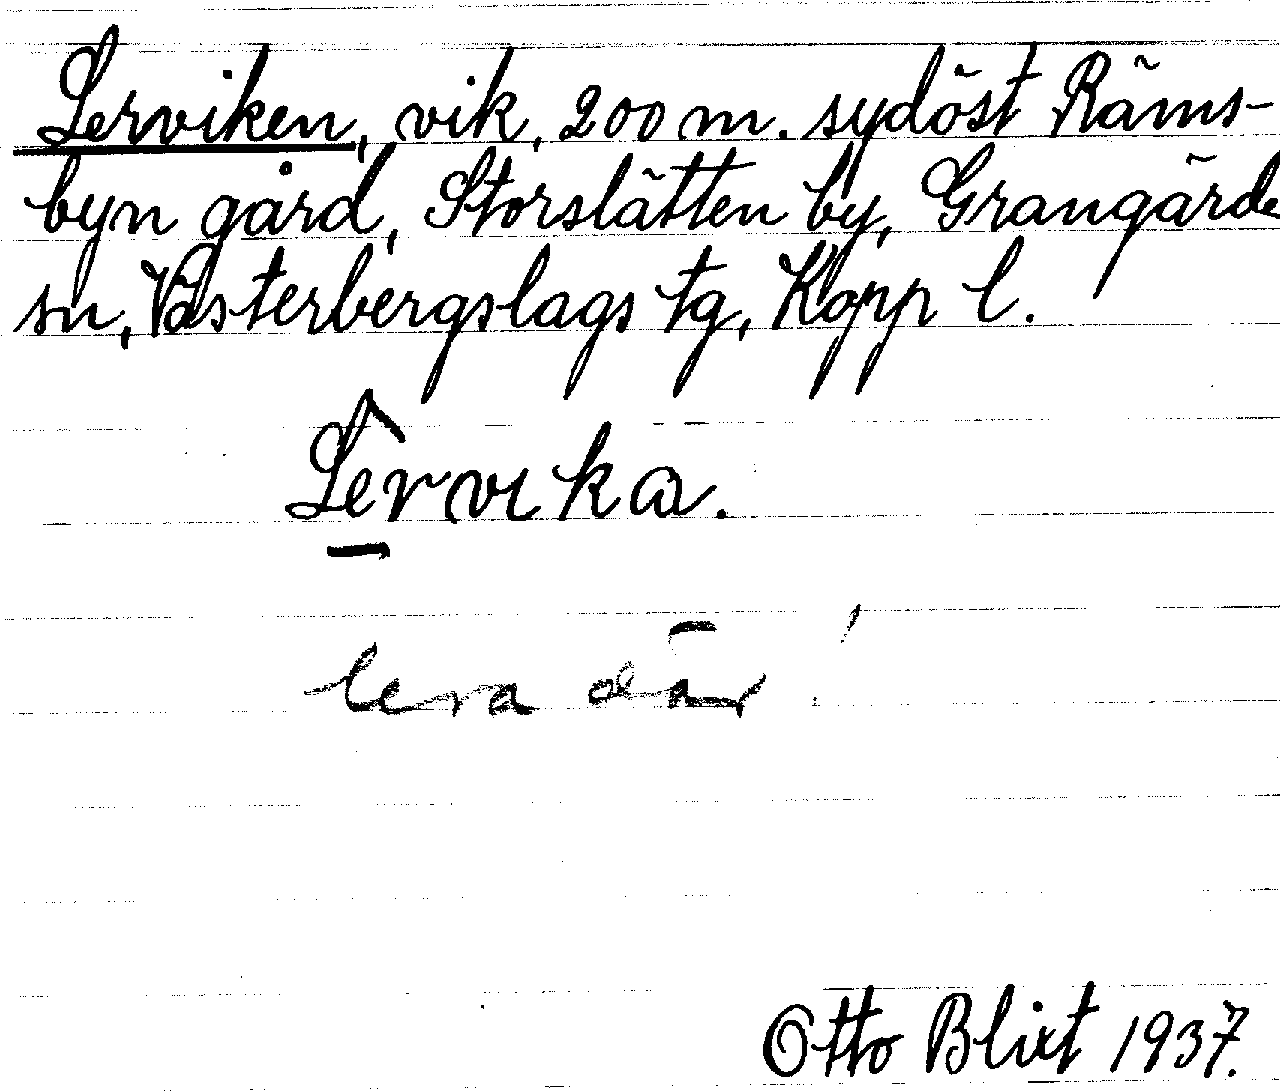 Lerviken, vik, 200 m. sydöst Räms-
byn gård, Storslätten by, Grangärde
sn, Västerbergslags tg, Kopp l.
Lervika.
lera där!
Otto Blixt 1937.